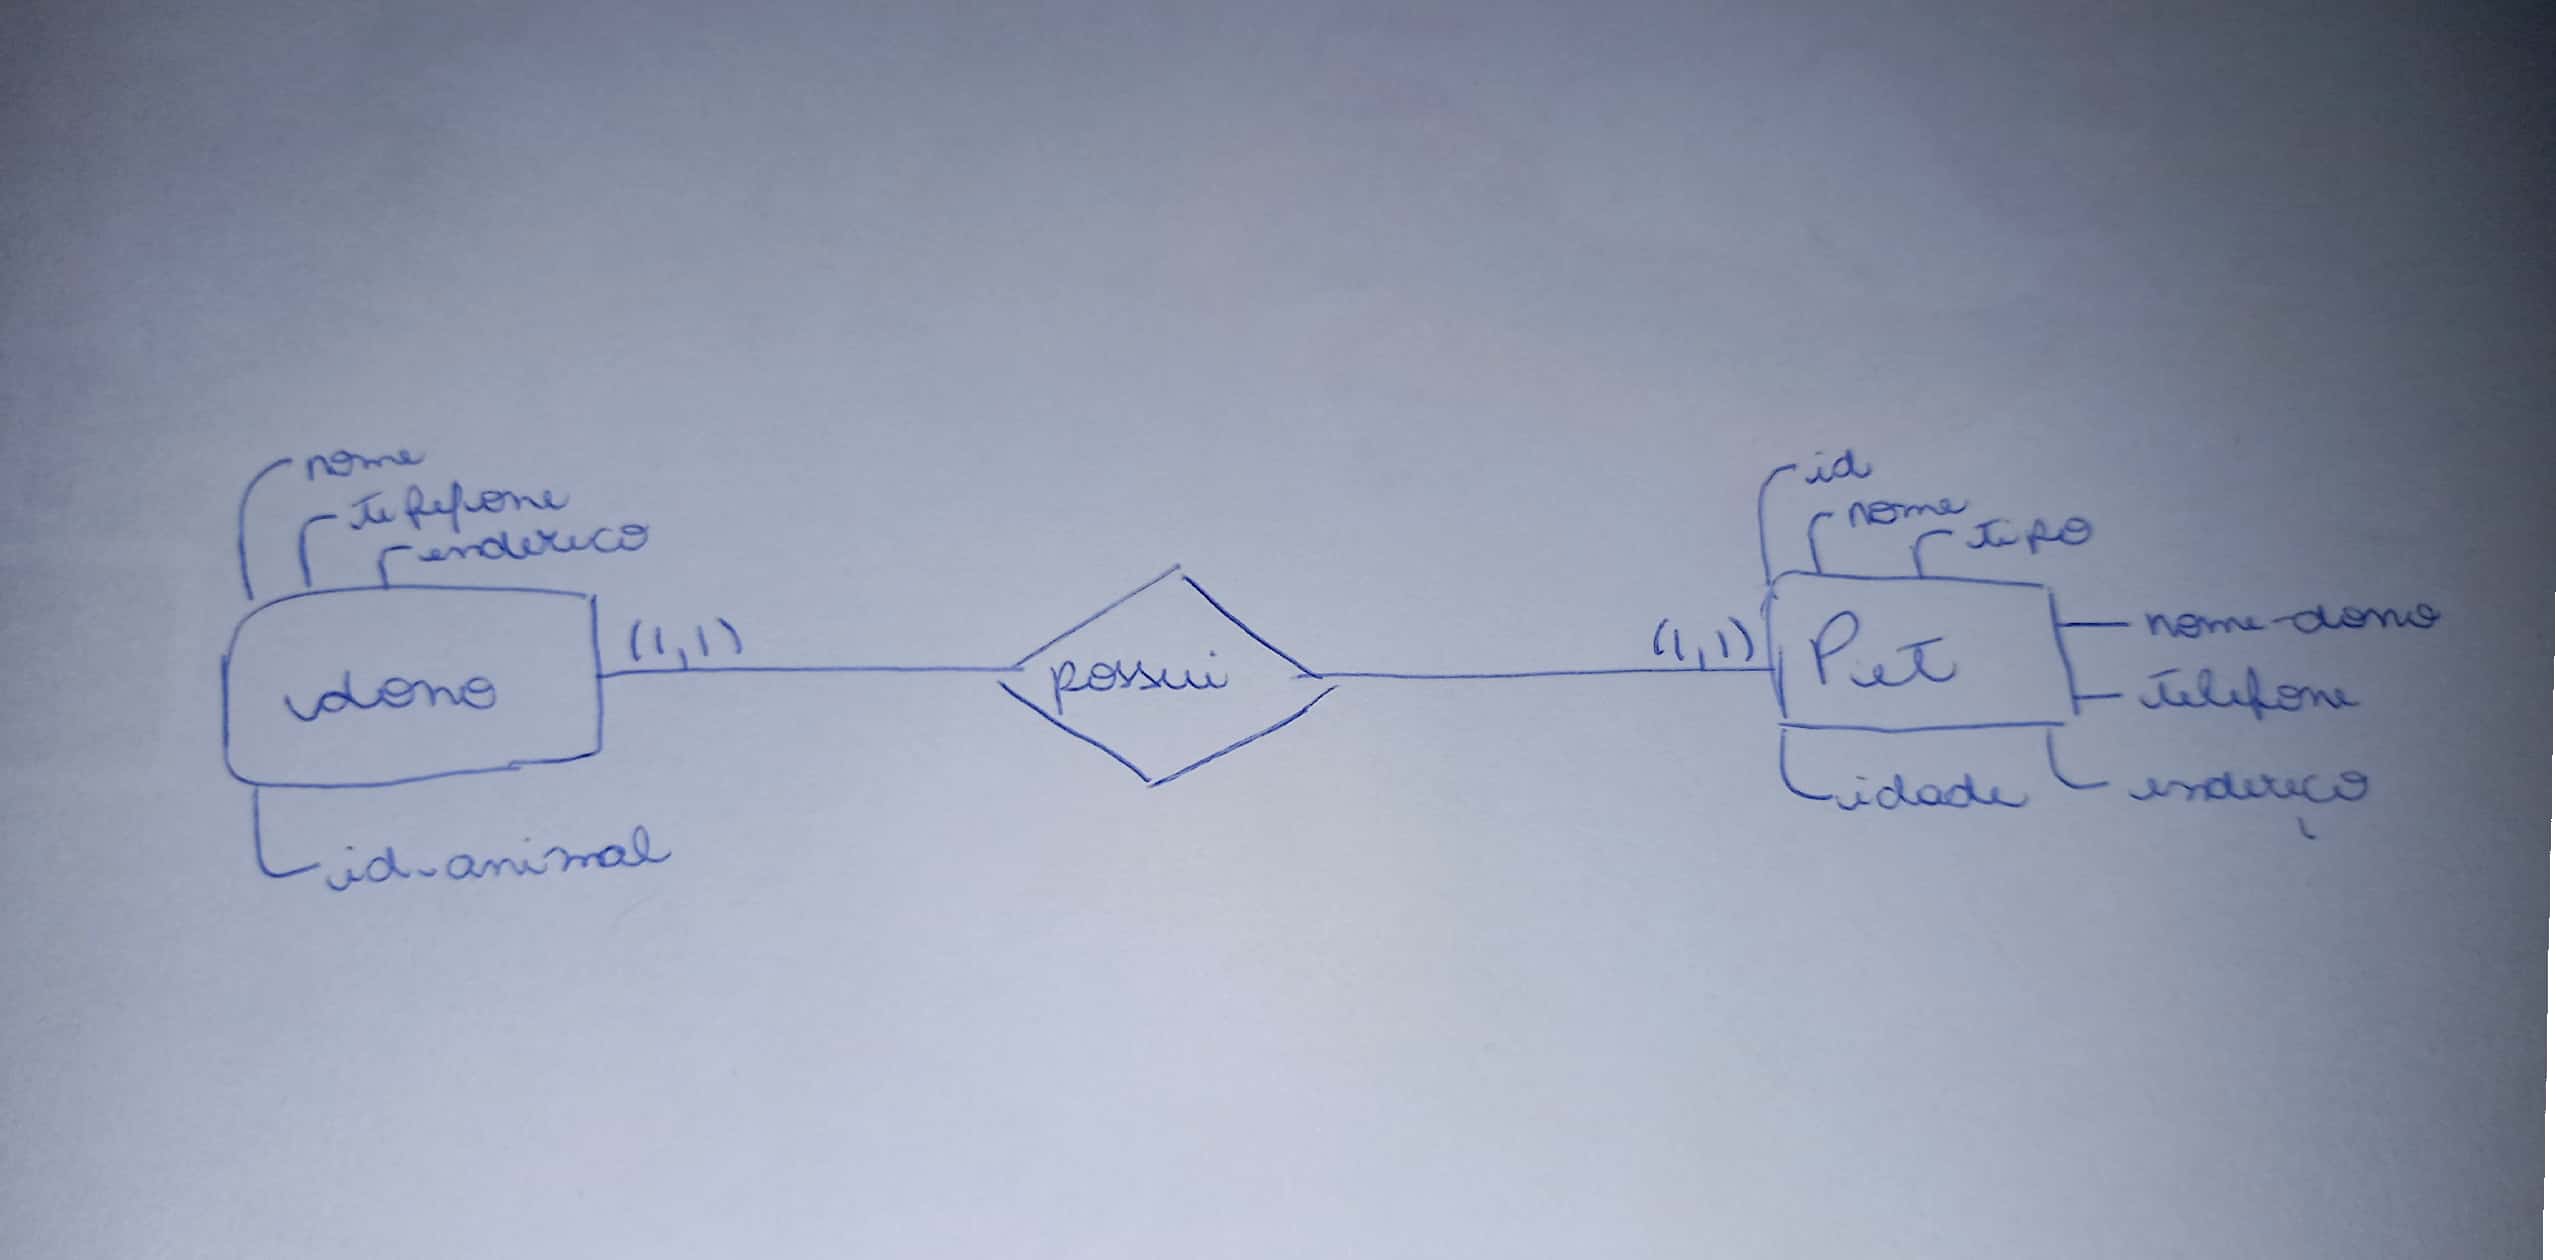 nome
telefone
endereco
dono
(1,1)
id-animal
possui
(1,1)
id
nome
tipo
Pet
nome-dono
telefone
idade
endereço